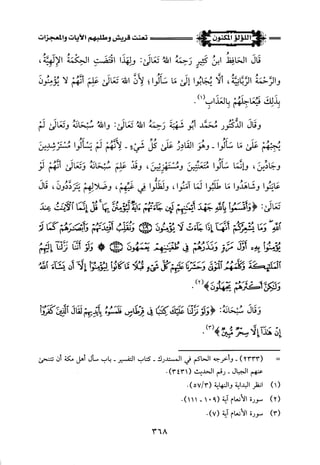 اللؤلؤ المكنون
تعنت قريش وطلبهم الآيات والمعجزات
قَالَ الحَافِظُ ابنُ كَثِيرٍ رَحِمَهُ اللهُ تَعَالَى: ولِهَذَا اقْتَضَتِ الحِكْمَةُ الإلَهِيَّةُ،
والرَّحْمَةُ الرَّبَّانِيَّةُ، أَلَّا يُجَابُوا إِلَى مَا سَأَلُوا؛ لِأَنَّ اللهَ تَعَالَى عَلِمَ أَنَّهُمْ لَا يُؤْمِنُونَ
بِذَلِكَ فَيُعَاجِلُهُمْ بِالعَذَابِ(١).
وقَالَ الدُّكْتُور مُحَمَّد أَبُو شَهْبَة رَحِمَهُ اللهُ تَعَالَى: واللهُ سُبْحَانَهُ وتَعَالَى لَمْ
يُجِبْهُمْ عَلَى مَا سَأَلُوا ـ وهُوَ القَادِرُ عَلَى كُلِّ شَيْءٍ ـ لِأَنَّهُمْ لَمْ يَسْأَلُوا مُسْتَرْشِدِينَ
وجَادِّينَ، وإِنَّمَا سَأَلُوا مُتَعَنِّتِينَ ومُسْتَهْزِئِينَ، وقَدْ عَلِمَ سُبْحَانَهُ وتَعَالَى أَنَّهُمْ لَوْ
عَايَنُوا وشَاهَدُوا مَا طَلَبُوا لَمَا آمَنُوا، ولَظَلُّوا فِي غَيِّهِمْ، وضَلَالِهِمْ يَتَرَدَّدُونَ، قَالَ
تَعَالَى: ﴿وَأَقْسَمُوا بِاللَّهِ جَهْدَ أَيْمَانِهِمْ لَئِن جَاءَتْهُمْ آيَةٌ لَّيُؤْمِنُنَّ بِهَا قُلْ إِنَّمَا الْآيَاتُ عِندَ
اللَّهِ وَمَا يُشْعِرُكُمْ أَنَّهَا إِذَا جَاءَتْ لَا يُؤْمِنُونَ ۝ وَنُقَلِّبُ أَفْئِدَتَهُمْ وَأَبْصَارَهُمْ كَمَا لَمْ
يُؤْمِنُوا بِهِ أَوَّلَ مَرَّةٍ وَنَذَرُهُمْ فِي طُغْيَانِهِمْ يَعْمَهُونَ ۝ وَلَوْ أَنَّنَا نَزَّلْنَا إِلَيْهِمُ
الْمَلَائِكَةَ وَكَلَّمَهُمُ الْمَوْتَى وَحَشَرْنَا عَلَيْهِمْ كُلَّ شَيْءٍ قُبُلًا مَّا كَانُوا لِيُؤْمِنُوا إِلَّا أَن يَشَاءَ اللَّهُ
وَلَكِنَّ أَكْثَرَهُمْ يَجْهَلُونَ﴾(٢).
وَقَالَ سُبْحَانَهُ: ﴿وَلَوْ نَزَّلْنَا عَلَيْكَ كِتَابًا فِي قِرْطَاسٍ فَلَمَسُوهُ بِأَيْدِيهِمْ لَقَالَ الَّذِينَ كَفَرُوا
إِنْ هَذَا إِلَّا سِحْرٌ مُّبِينٌ﴾(٣).
= (٢٣٣٣) ـ وأخرجه الحاكم في المستدرك ـ كتاب التفسير ـ باب سأل أهل مكة أن تتنحى
عنهم الجبال ـ رقم الحديث (٣٤٣١).
(١) انظر البداية والنهاية (٥٧/٣).
(٢) سورة الأنعام آية (١٠٩ ـ ١١١).
(٣) سورة الأنعام آية (٧).
٣٦٨